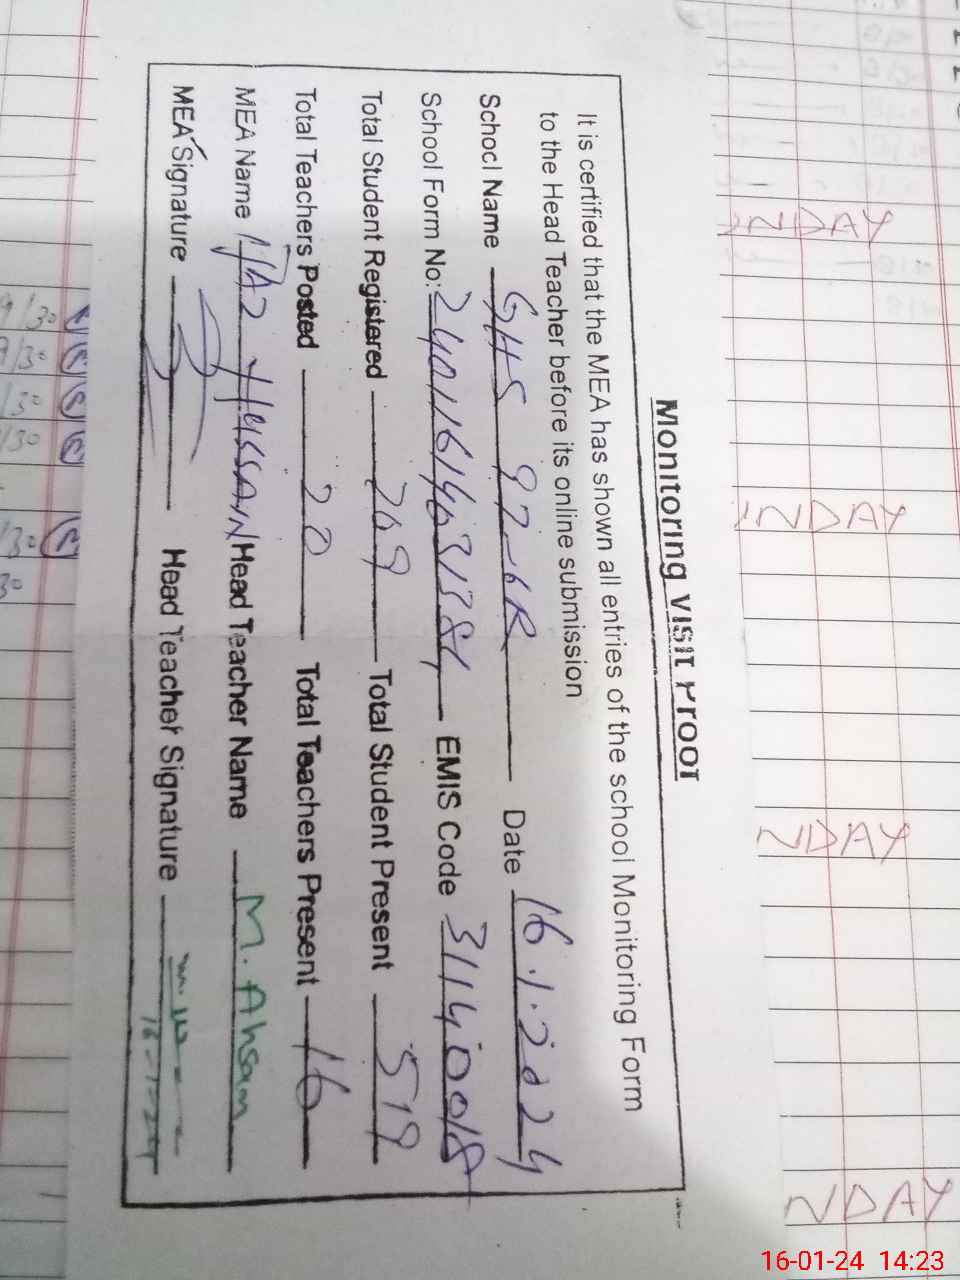 Monitoring Visit Proof
It is certified that the MEA has shown all entries of the school Monitoring Form
to the Head Teacher before its online submission
School Name GHS 97-6R Date 16.1.2024
School Form No: EMIS Code 31140018
Total Student Registered 709 Total Student Present 519
Total Teachers Posted 20 Total Teachers Present 16
MEA Name HUSSAIN Head Teacher Name M. Ahsam
MEA Signature Head Teacher Signature
NDAY
NDAY
NDAY
NDAY
16-01-24 14:23